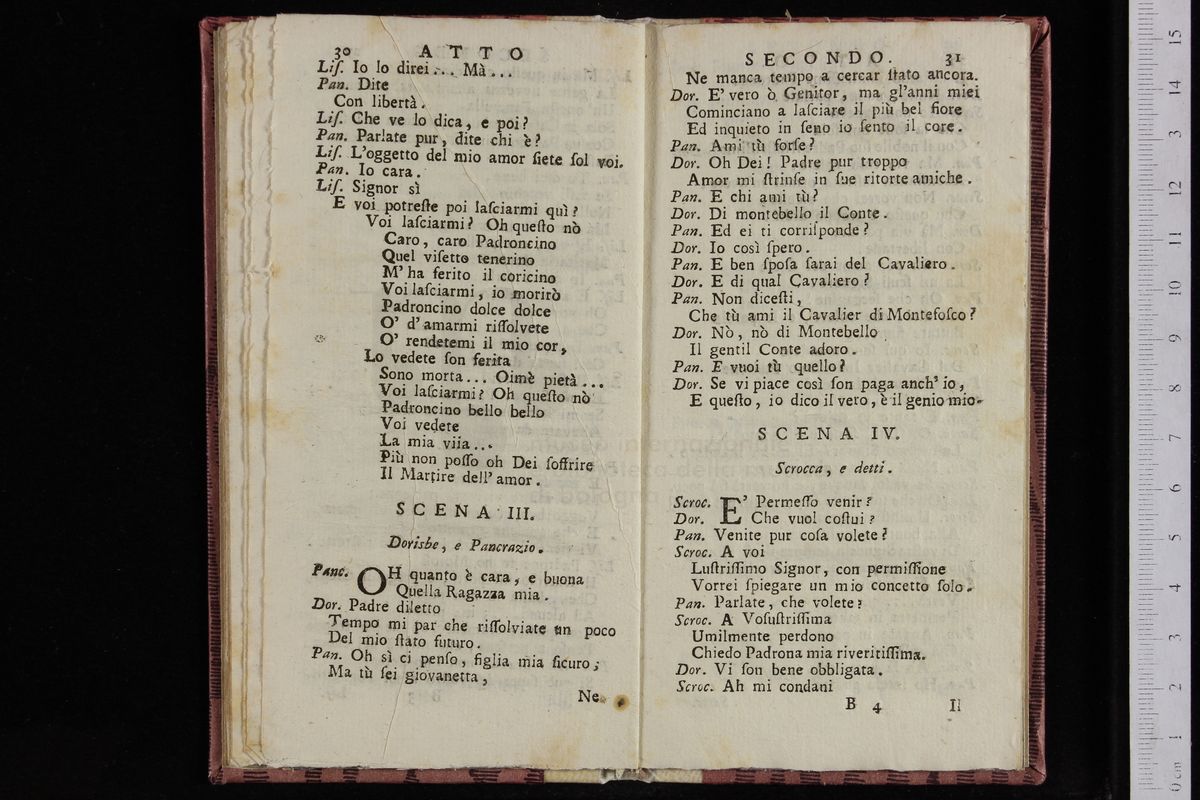 30 ATTO
Liſ. Io lo direi... Mà...
Pan. Dite
Con libertà.
Liſ. Che ve lo dica, e poi?
Pan. Parlate pur, dite chi è?
Liſ. L'oggetto del mio amor ſiete ſol voi.
Pan. Io cara.
Liſ. Signor sì
E voi potreſte poi laſciarmi quì?
Voi laſciarmi? Oh queſto nò
Caro, caro Padroncino
Quel viſetto tenerino
M'ha ferito il coricino
Voi laſciarmi, io morirò
Padroncino dolce dolce
O' d'amarmi riſſolvete
O' rendetemi il mio cor,
Lo vedete ſon ferita
Sono morta... Oimè pietà...
Voi laſciarmi? Oh queſto nò
Padroncino bello bello
Voi vedete
La mia vita...
Più non poſſo oh Dei ſoffrire
Il Martire dell'amor.
SCENA III.
Dorisbe, e Pancrazio.
Panc. OH quanto è cara, e buona
Quella Ragazza mia.
Dor. Padre diletto
Tempo mi par che riſſolviate un poco
Del mio ſtato futuro.
Pan. Oh sì ci penſo, figlia mia ſicuro;
Ma tù ſei giovanetta,
Ne
SECONDO. 31
Ne manca tempo a cercar ſtato ancora.
Dor. E' vero ò Genitor, ma gl'anni miei
Cominciano a laſciare il più bel fiore
Ed inquieto in ſeno io ſento il core.
Pan. Ami tù forſe?
Dor. Oh Dei! Padre pur troppo
Amor mi ſtrinſe in ſue ritorte amiche.
Pan. E chi ami tù?
Dor. Di montebello il Conte.
Pan. Ed ei ti corriſponde?
Dor. Io così ſpero.
Pan. E ben ſpoſa ſarai del Cavaliero.
Dor. E di qual Cavaliero?
Pan. Non diceſti,
Che tù ami il Cavalier di Montefoſco?
Dor. Nò, nò di Montebello
Il gentil Conte adoro.
Pan. E vuoi tù quello?
Dor. Se vi piace così ſon paga anch'io,
E queſto, io dico il vero, è il genio mio.
SCENA IV.
Scrocca, e detti.
Scroc. E' Permeſſo venir?
Dor. Che vuol coſtui?
Pan. Venite pur coſa volete?
Scroc. A voi
Luſtriſſimo Signor, con permiſſione
Vorrei ſpiegare un mio concetto ſolo.
Pan. Parlate, che volete?
Scroc. A Voſuſtriſſima
Umilmente perdono
Chiedo Padrona mia riveritiſſima.
Dor. Vi ſon bene obbligata.
Scroc. Ah mi condani
B 4 Il